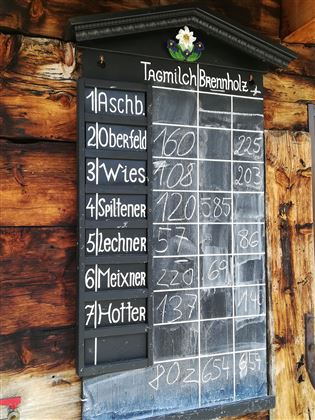 Tagmilch Brennholz
1 Aschb.
2 Oberfeld 160 225
3 Wies 108 203
4 Spiltener 120 585
5 Lechner 57 86
6 Meixner 220 69
7 Hotter 137 14
802 654 454